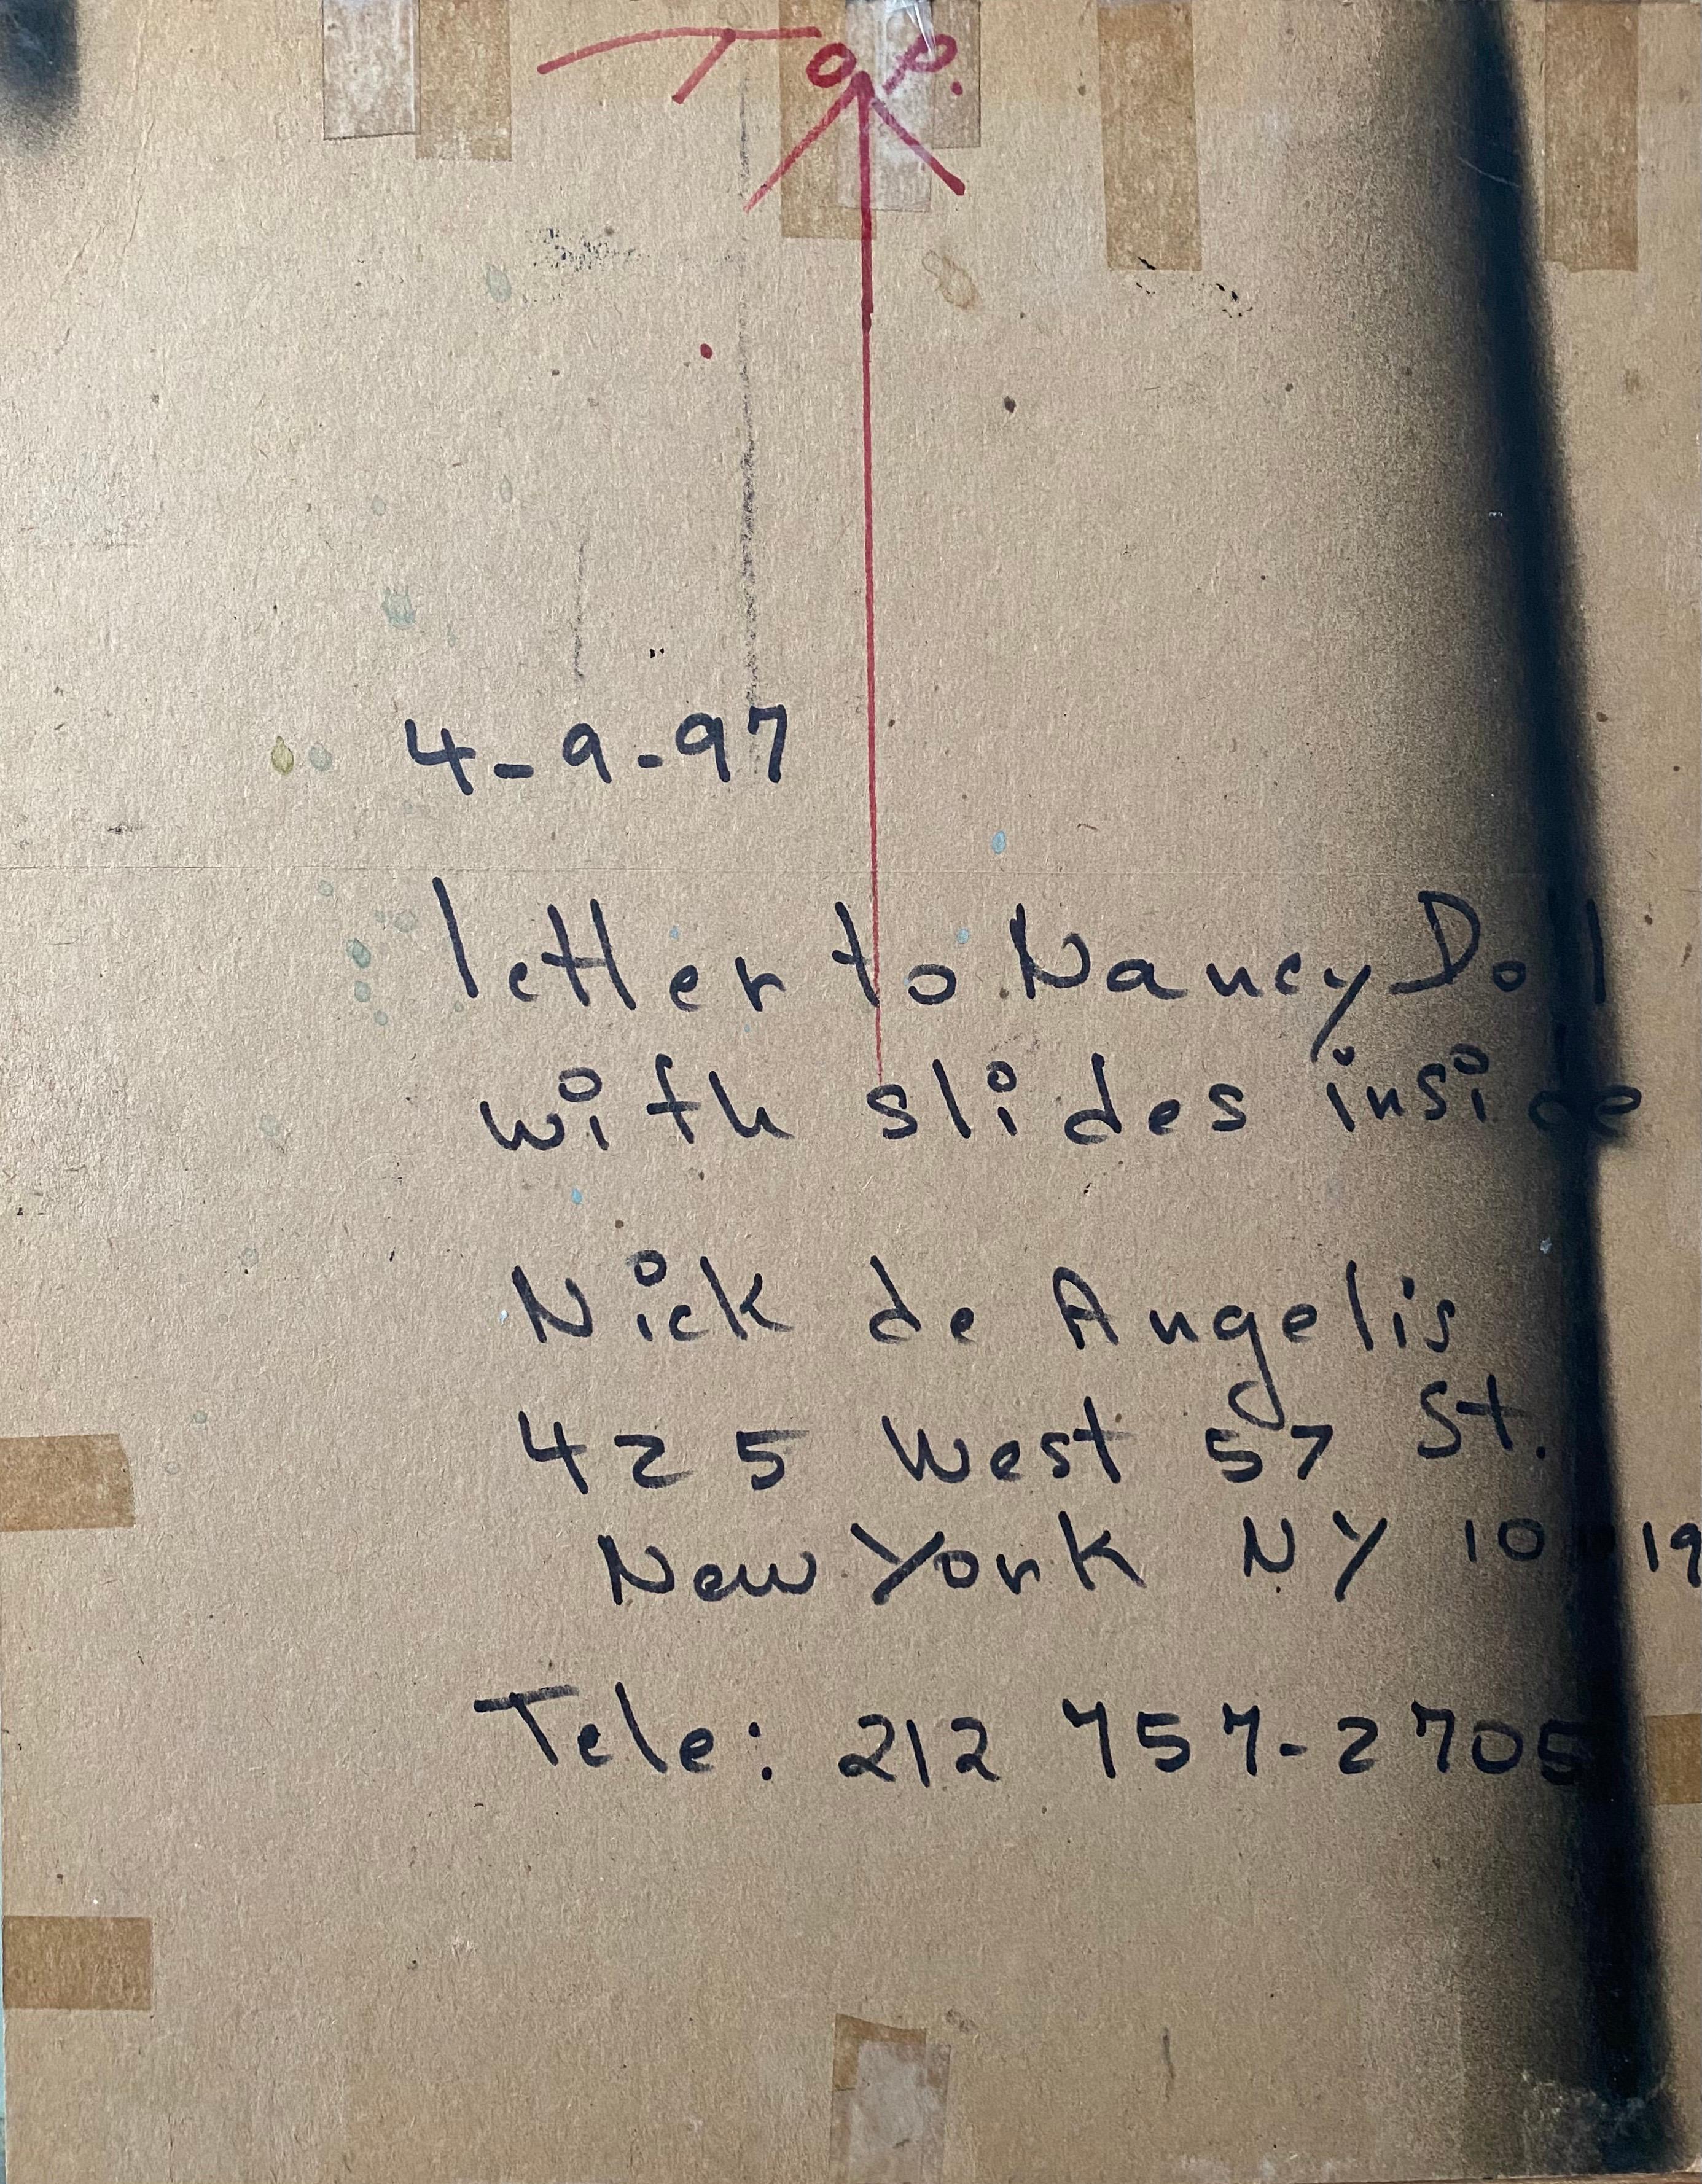 TOP.
4-9-97
letter to Nancy
with slides inside
Nick de Angelis
425 West 57 St.
New York NY
Tele: 212 757-2705